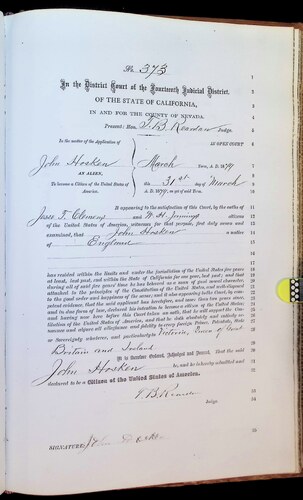 No. 373
In the District Court of the Fourteenth Judicial District.
OF THE STATE OF CALIFORNIA,
IN AND FOR THE COUNTY OF NEVADA.
Present: Hon. T. B. Reardan Judge.
In the matter of the Application of
IN OPEN COURT
John Hosken
March Term, A. D. 1879
AN ALIEN,
this 31st day of March
To become a Citizen of the United States of America.
A. D. 1879
It appearing to the satisfaction of this Court, by the oaths of
Jesse T. Clemens and W. H. Jennings citizens
of the United States of America, witnesses for that purpose, first duly sworn and
examined, that John Hosken a native
of England
has resided within the limits and under the jurisdiction of the United States five years
at least, last past, and within the State of California for one year, last past; and that
during all of said five years' time he has behaved as a man of good moral character,
attached to the principles of the Constitution of the United States, and well-disposed
to the good order and happiness of the same; and it also appearing to the Court, by competent
evidence, that the said applicant has heretofore, and more than two years since,
and in due form of law, declared his intention to become a citizen of the United States,
and having now here before this Court taken an oath, that he will support the Constitution
of the United States of America, and that he doth absolutely and entirely renounce
and abjure all allegiance and fidelity to every foreign Prince, Potentate, State
or Sovereignty whatever, and particularly to Victoria, Queen of Great
Britain and Ireland
It is therefore Ordered, Adjudged and Decreed, That the said
John Hosken be, and he is hereby admitted and
declared to be a Citizen of the United States of America.
T. B. Reardan
Judge.
SIGNATURE: John Hosken